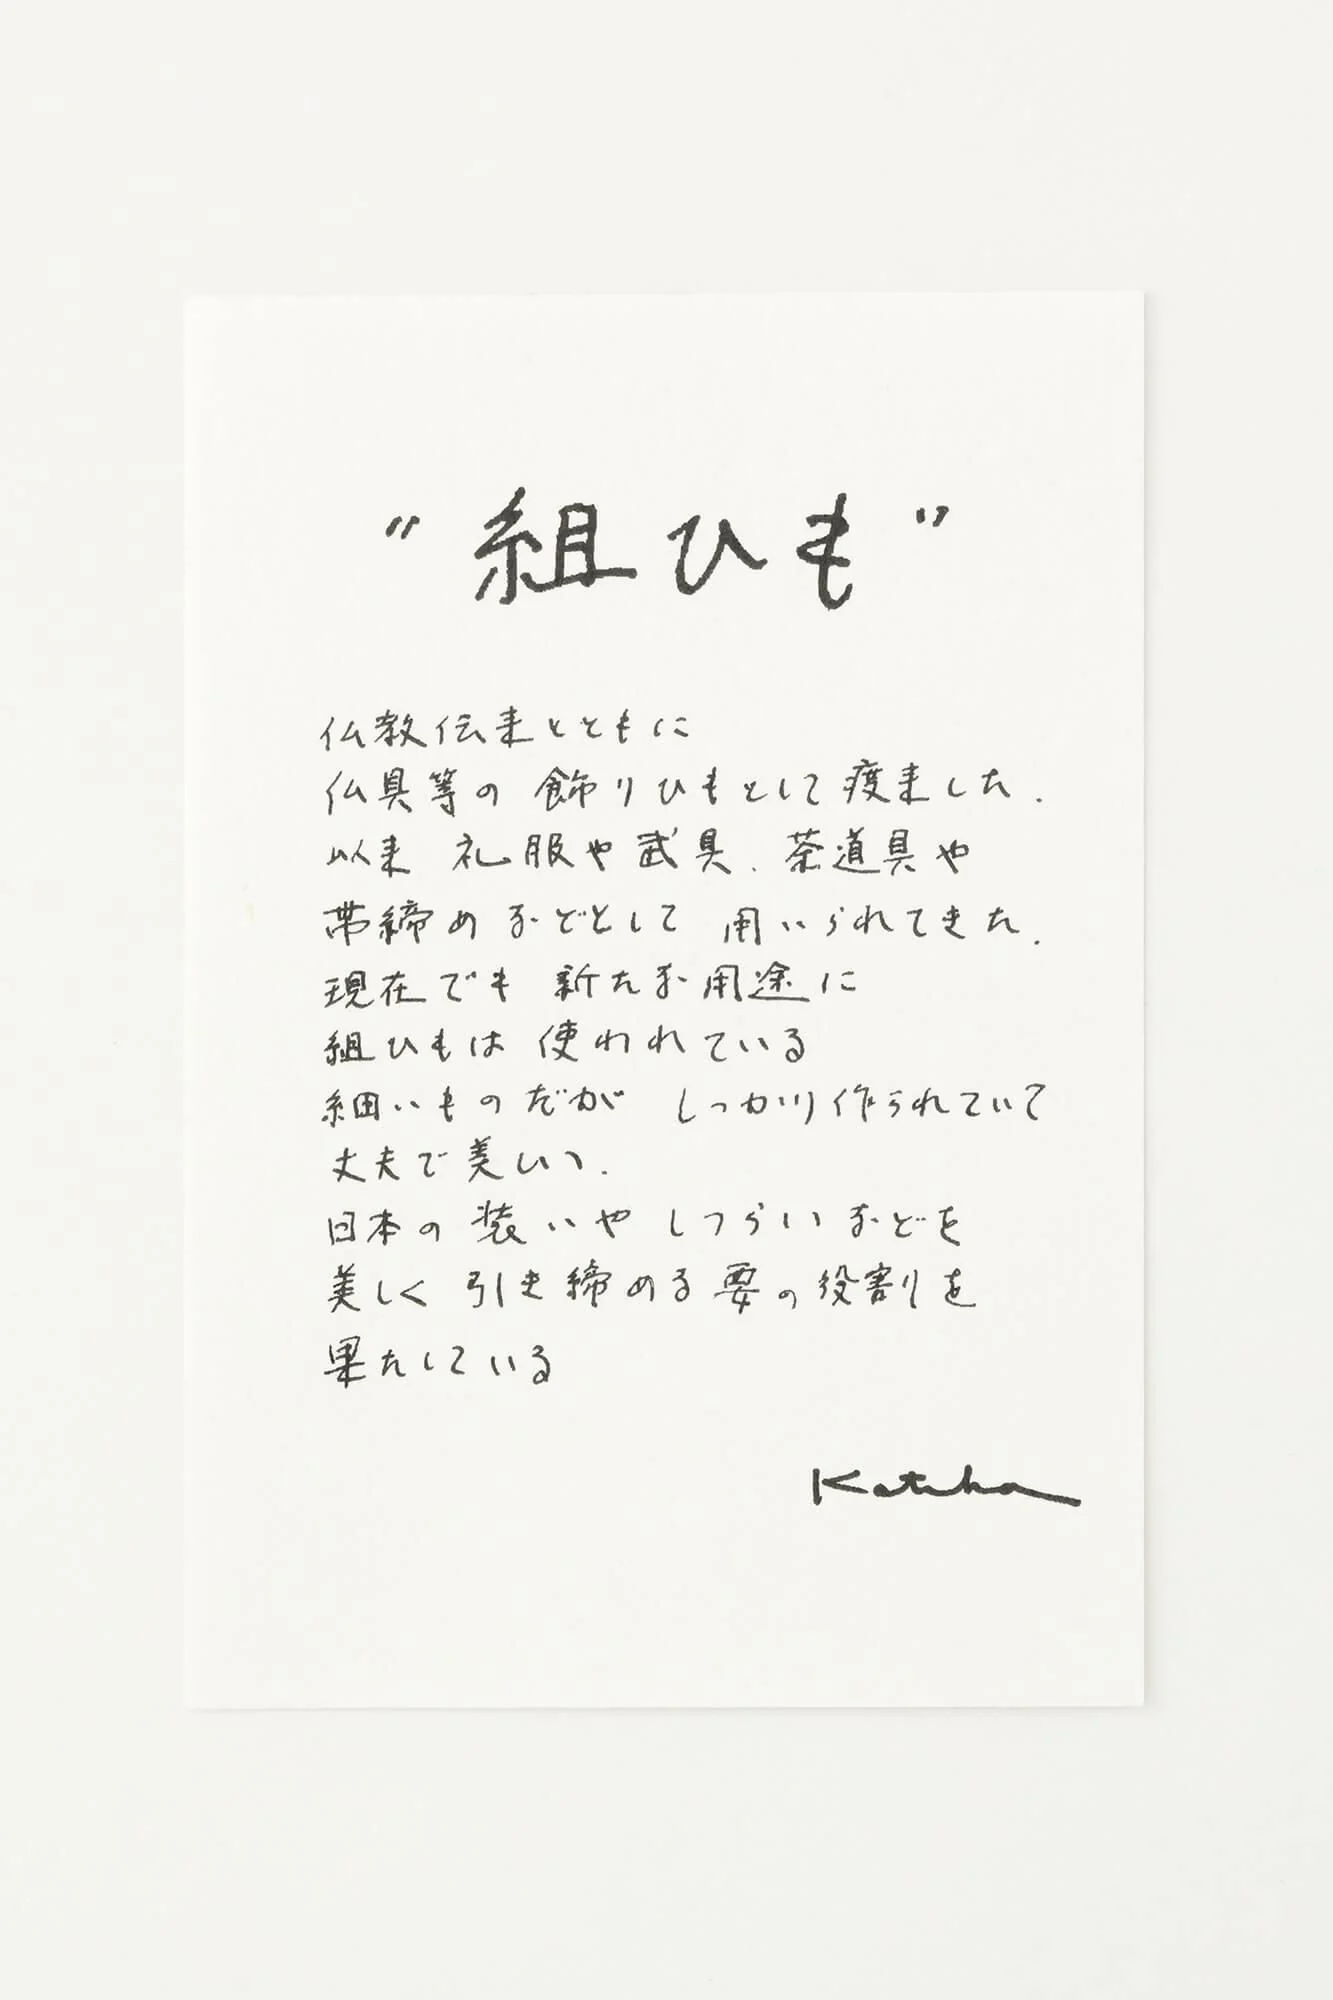 "組ひも"
仏教伝来とともに
仏具等の 飾りひもとして渡来した.
以来 礼服や武具、茶道具や
帯締めなどとして 用いられてきた.
現在でも 新たな用途に
組ひもは 使われている
細いものだが しっかり作られていて
丈夫で美しい.
日本の 装いや しつらいなどを
美しく 引き締める要の役割を
果たしている